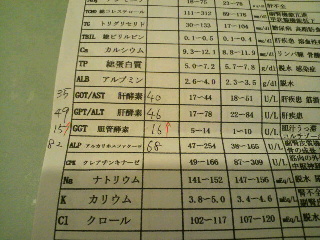 総コレステロール 111~312 89~176 mg/dl
TG トリグリセリド 30~133 17~104 mg/dl
TBIL 総ビリルビン 0.1~0.5 0.1~0.4 mg/dl
Ca カルシウム 9.3~12.1 8.8~11.9 mg/dl
TP 総蛋白質 5.0~7.2 5.7~7.8 g/dl 脱水 感染症
ALB アルブミン 2.6~4.0 2.3~3.5 g/dl 脱水
35 GOT/AST 肝酵素 40 17~44 18~51 U/L 肝疾患
49 GPT/ALT 肝酵素 46 17~78 22~84 U/L 肝疾患
15↑ GGT 胆管酵素 16↑ 5~14 1~10 U/L
82 ALP アルカリホスファターゼ 68 47~254 38~165 U/L
CPK クレアチンキナーゼ 49~166 87~309 U/L
Na ナトリウム 141~152 147~156 mEq/L
K カリウム 3.8~5.0 3.4~4.6 mEq/L
Cl クロール 102~117 107~120 mEq/L